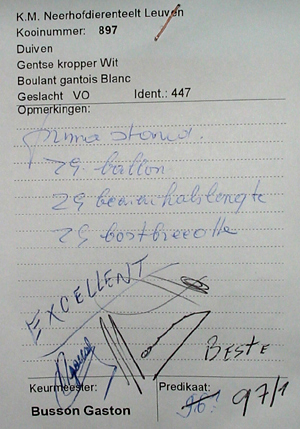 K.M. Neerhofdierenteelt Leuven
Kooinummer: 897
Duiven
Gentse kropper Wit
Boulant gantois Blanc
Geslacht VO Ident.: 447
Opmerkingen:
prima stand.
zg. ballon
zg borstbreedte
EXCELLENT
BESTE
Keurmeester: Predikaat:
Busson Gaston 96 97/1